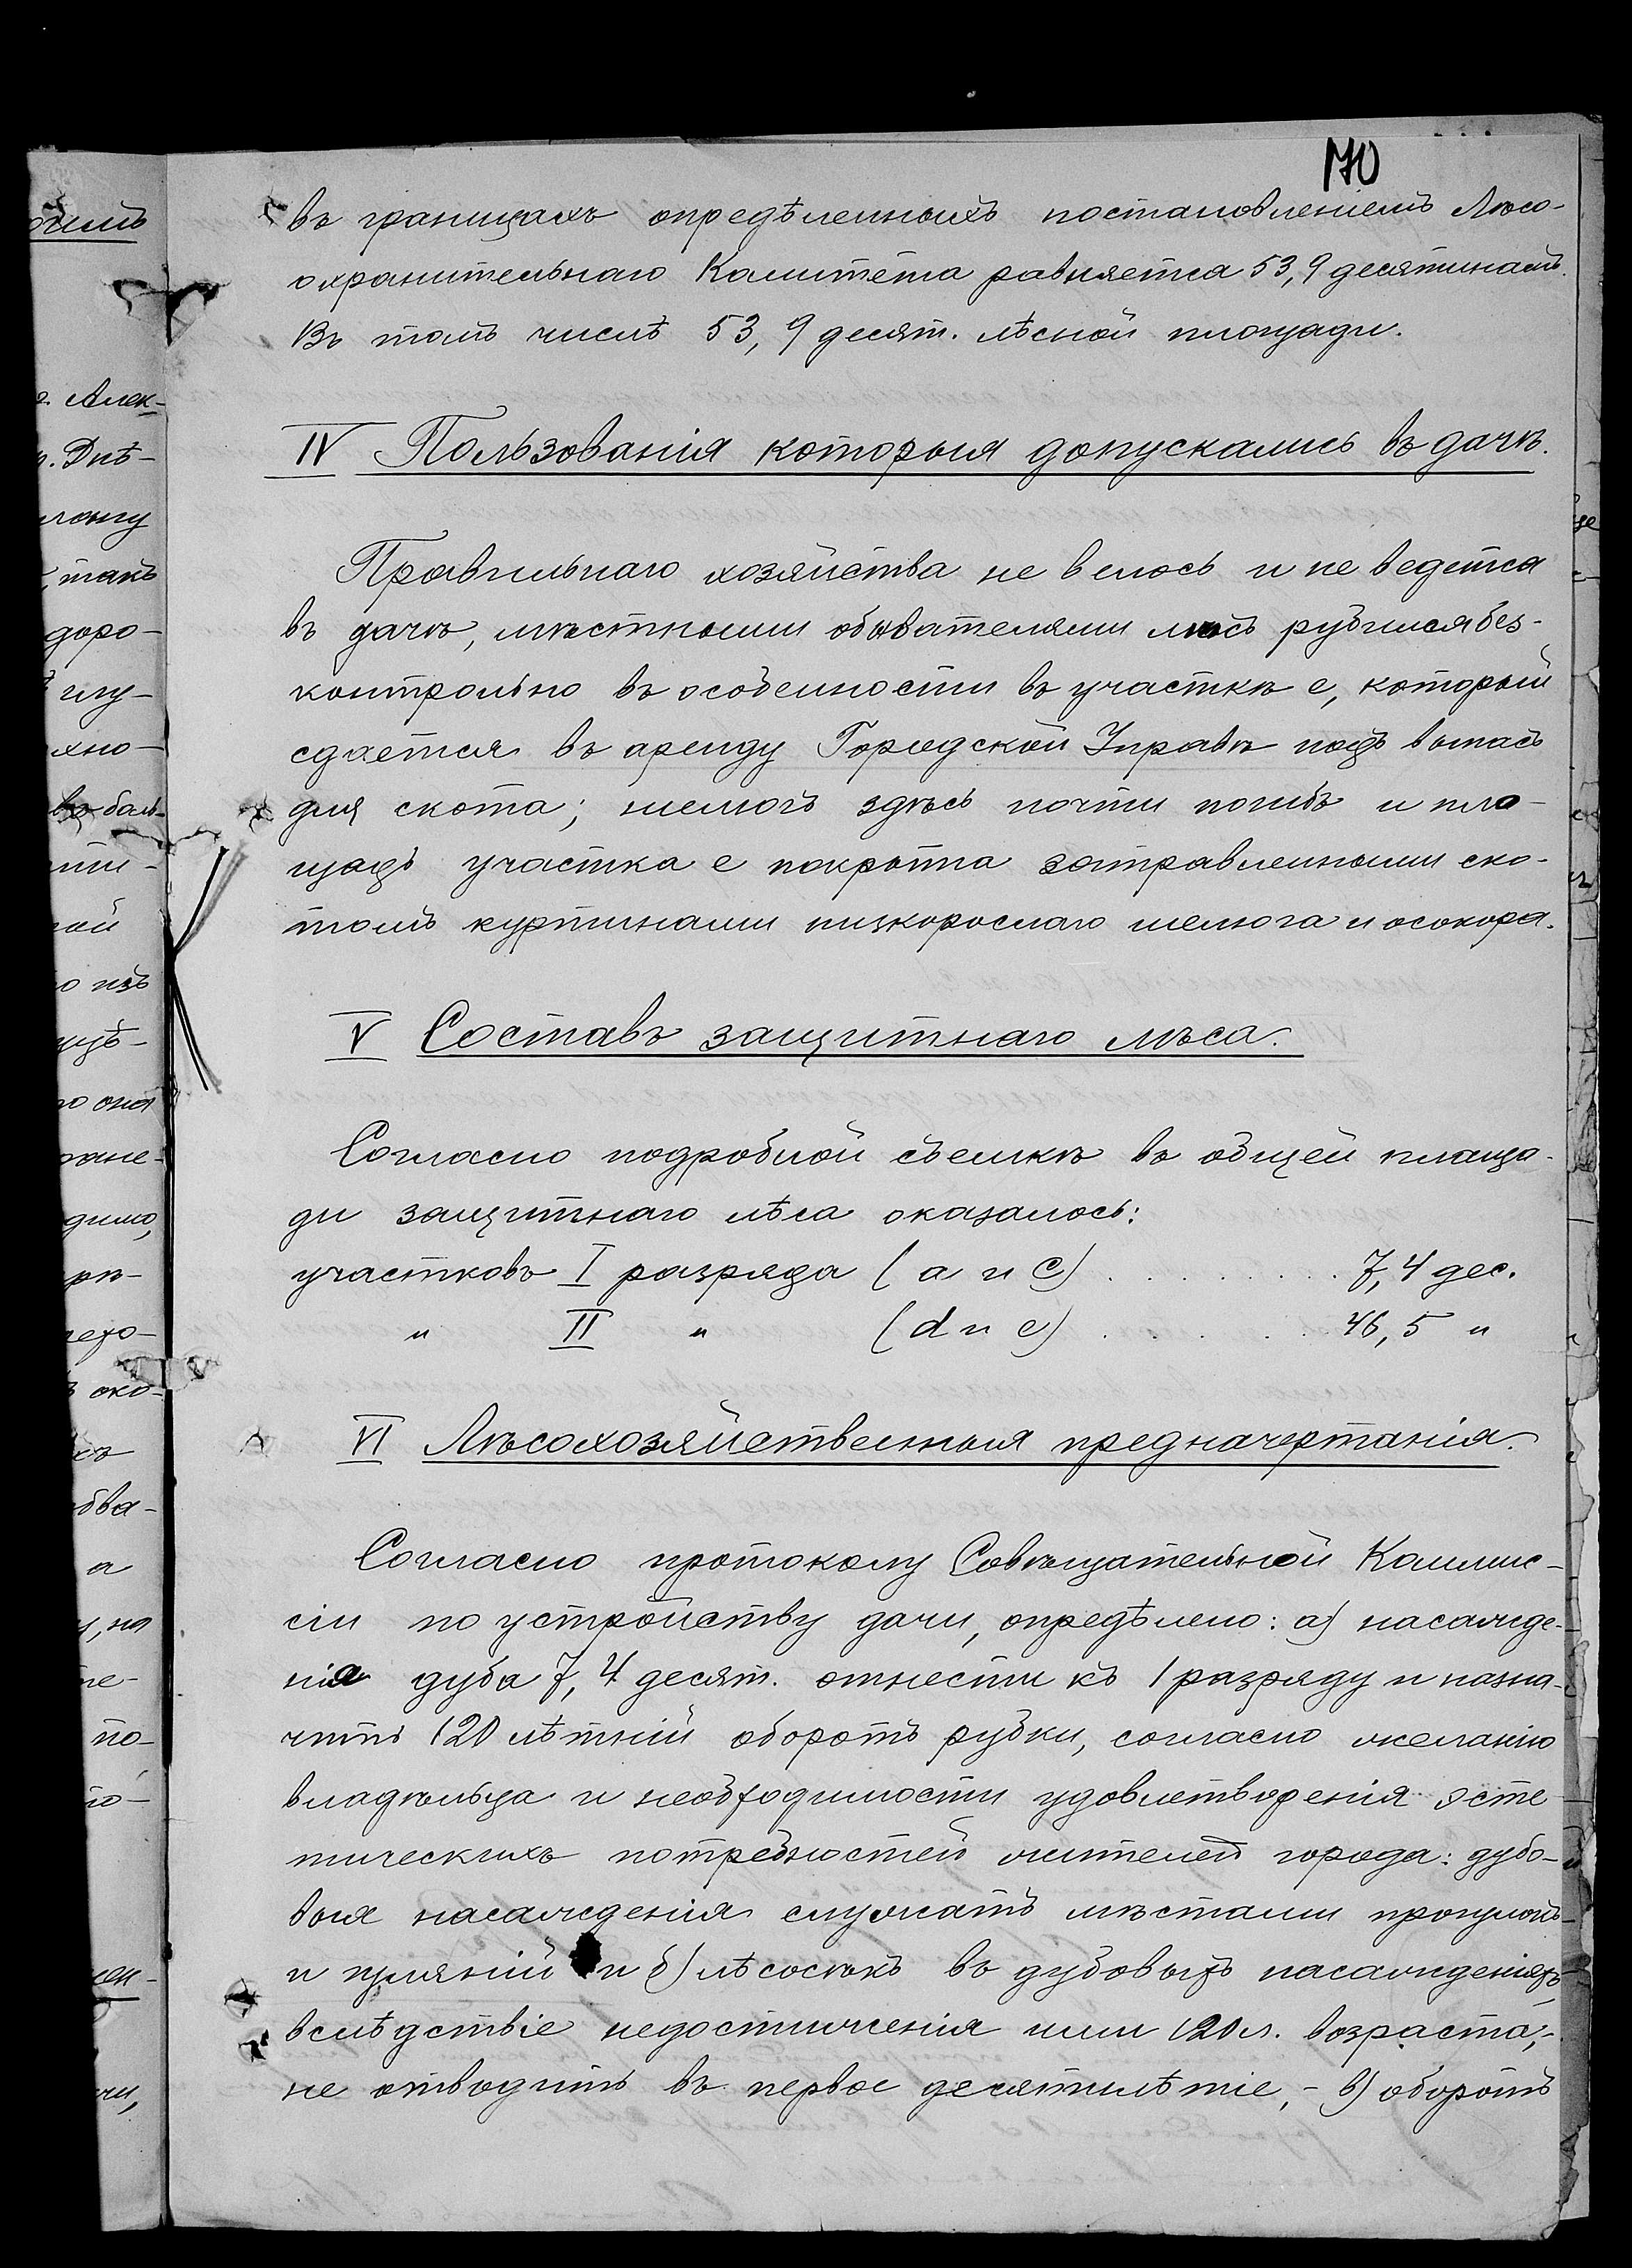 170
въ границахъ опредѣленныхъ постановленіемъ Лѣсо-
охранительнаго Комитета равняется 53,9 десятинамъ.
Въ томъ числѣ 53,9 десят. лѣсной площади.
IV Пользованія которыя допускались въ дачѣ.
Правильнаго хозяйства не велось и не ведется
въ дачѣ, мѣстными обывателями лѣсъ рубился без-
контрольно въ особенности въ участкѣ е, который
сдается въ аренду Городской Управѣ подъ выпасъ
для скота; шелюгъ здѣсь почти погибъ и пло-
щадь участка е покрыта затравленными ско-
томъ куртинами низкорослаго шелюга и осокоря.
V Составъ защитнаго лѣса.
Согласно подробной съемкѣ въ общей площа-
ди защитнаго лѣса оказалось:
участковъ I разряда (а и с) . . . . . . . . . 7,4 дес.
" II " (d и е) . . . . . . 46,5 "
VI Лѣсохозяйственныя предначертанія.
Согласно протоколу Совѣщательной Коммис-
сіи по устройству дачи, опредѣлено: а) насажде-
нія дуба 7,4 десят. отнести къ 1 разряду и назна-
чить 120 лѣтній оборотъ рубки, согласно желанію
владѣльца и необходимости удовлетворенія эсте
тическихъ потребностей жителей города: дубо-
выя насажденія служатъ мѣстами прогулокъ
и гуляній и б) лѣсосѣкъ въ дубовыхъ насажденіяхъ,
вслѣдствіе недостиженія ими 120 л. возраста,-
не отводить въ первое десятилѣтіе, - в) оборотъ
очимъ
г. Алек-
р. Днѣ-
такъ
доро-
глу-
хно-
въ боль-
о изъ
о она
димо,
око-
бва-
а
по-